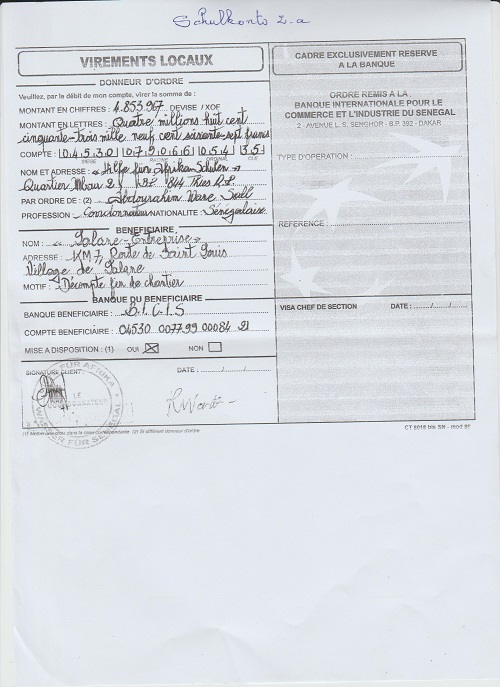 Schulkonto 2.a
VIREMENTS LOCAUX
DONNEUR D'ORDRE
Veuillez, par le débit de mon compte, virer la somme de :
MONTANT EN CHIFFRES : 4.853.967 DEVISE / XOF
MONTANT EN LETTRES : Quatre millions huit cent
cinquante-trois mille neuf cent soixante-sept francs
COMPTE : 04530 079066 054 35
RACINE ORDINAL CLE
NOM ET ADRESSE : "Hilfe für Afrikan Schulen"
Quartier Mbour 2 B.P. 844 Thies R.P.
PAR ORDRE DE : (2) Abdourahim Wane Sall
PROFESSION : NATIONALITE : Sénégalaise
BENEFICIAIRE
NOM : "Palane-Entreprise"
ADRESSE : KM 7, Route de Saint Louis
Village de Palane
MOTIF : Décompte fin de chantier
BANQUE DU BENEFICIAIRE
BANQUE BENEFICIAIRE : B.I.C.I.S
COMPTE BENEFICIAIRE : 04530 007799 00084 21
MISE A DISPOSITION : (1) OUI NON
SIGNATURE CLIENT : DATE : ....../....../......
FÜR AFRIKA
LE
WASSER FÜR SENEGAL
(1) Mettre une croix dans la case correspondante (2) Si différent donneur d'ordre
CADRE EXCLUSIVEMENT RESERVE
A LA BANQUE
ORDRE REMIS A LA
BANQUE INTERNATIONALE POUR LE
COMMERCE ET L'INDUSTRIE DU SENEGAL
2 - AVENUE L. S. SENGHOR - B.P. 392 - DAKAR
TYPE D'OPERATION :
REFERENCE :
VISA CHEF DE SECTION DATE : ....../....../......
CT 8018 bis SN - mod 99